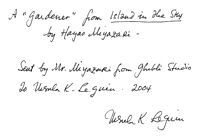 A "Gardener" from Island in the Sky
by Hayao Miyazaki -
Sent by Mr. Miyazaki from Ghibli Studio
To Ursula K. Le Guin. 2004
Ursula K. Le Guin